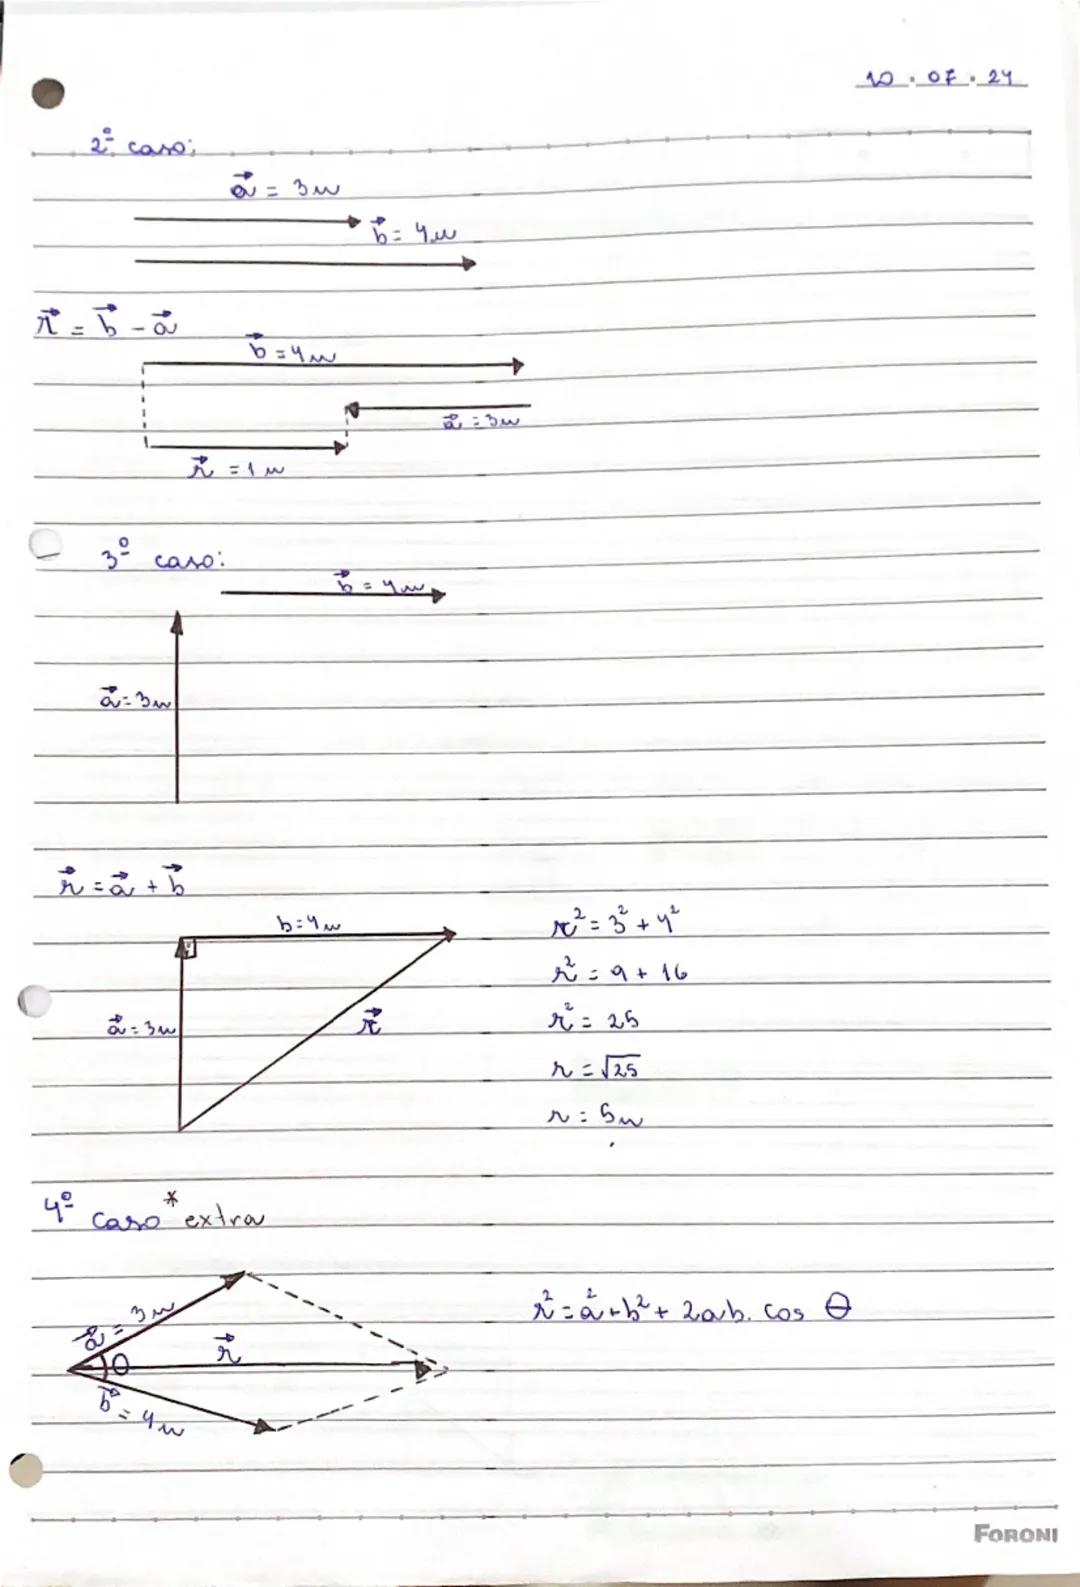 10.07.24
2º caso:
a⃗ = 3u
b⃗ = 4u
r⃗ = b⃗ - a⃗
b⃗ = 4u
a⃗ = 3u
r⃗ = 1u
3º caso:
b⃗ = 4u
a⃗ = 3u
r⃗ = a⃗ + b⃗
b = 4u
a⃗ = 3u
r⃗
r² = 3² + 4²
r² = 9 + 16
r² = 25
r = √25
r = 5u
4º caso *extra
a⃗ = 3u
θ
r⃗
b⃗ = 4u
r² = a² + b² + 2ab. cos θ
FORONI